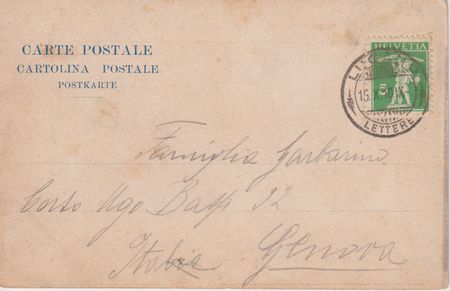 CARTE POSTALE
CARTOLINA POSTALE
POSTKARTE
HELVETIA
5
LETTERE
Famiglia Garbarino
Corso Ugo Bassi 32
Italia Genova